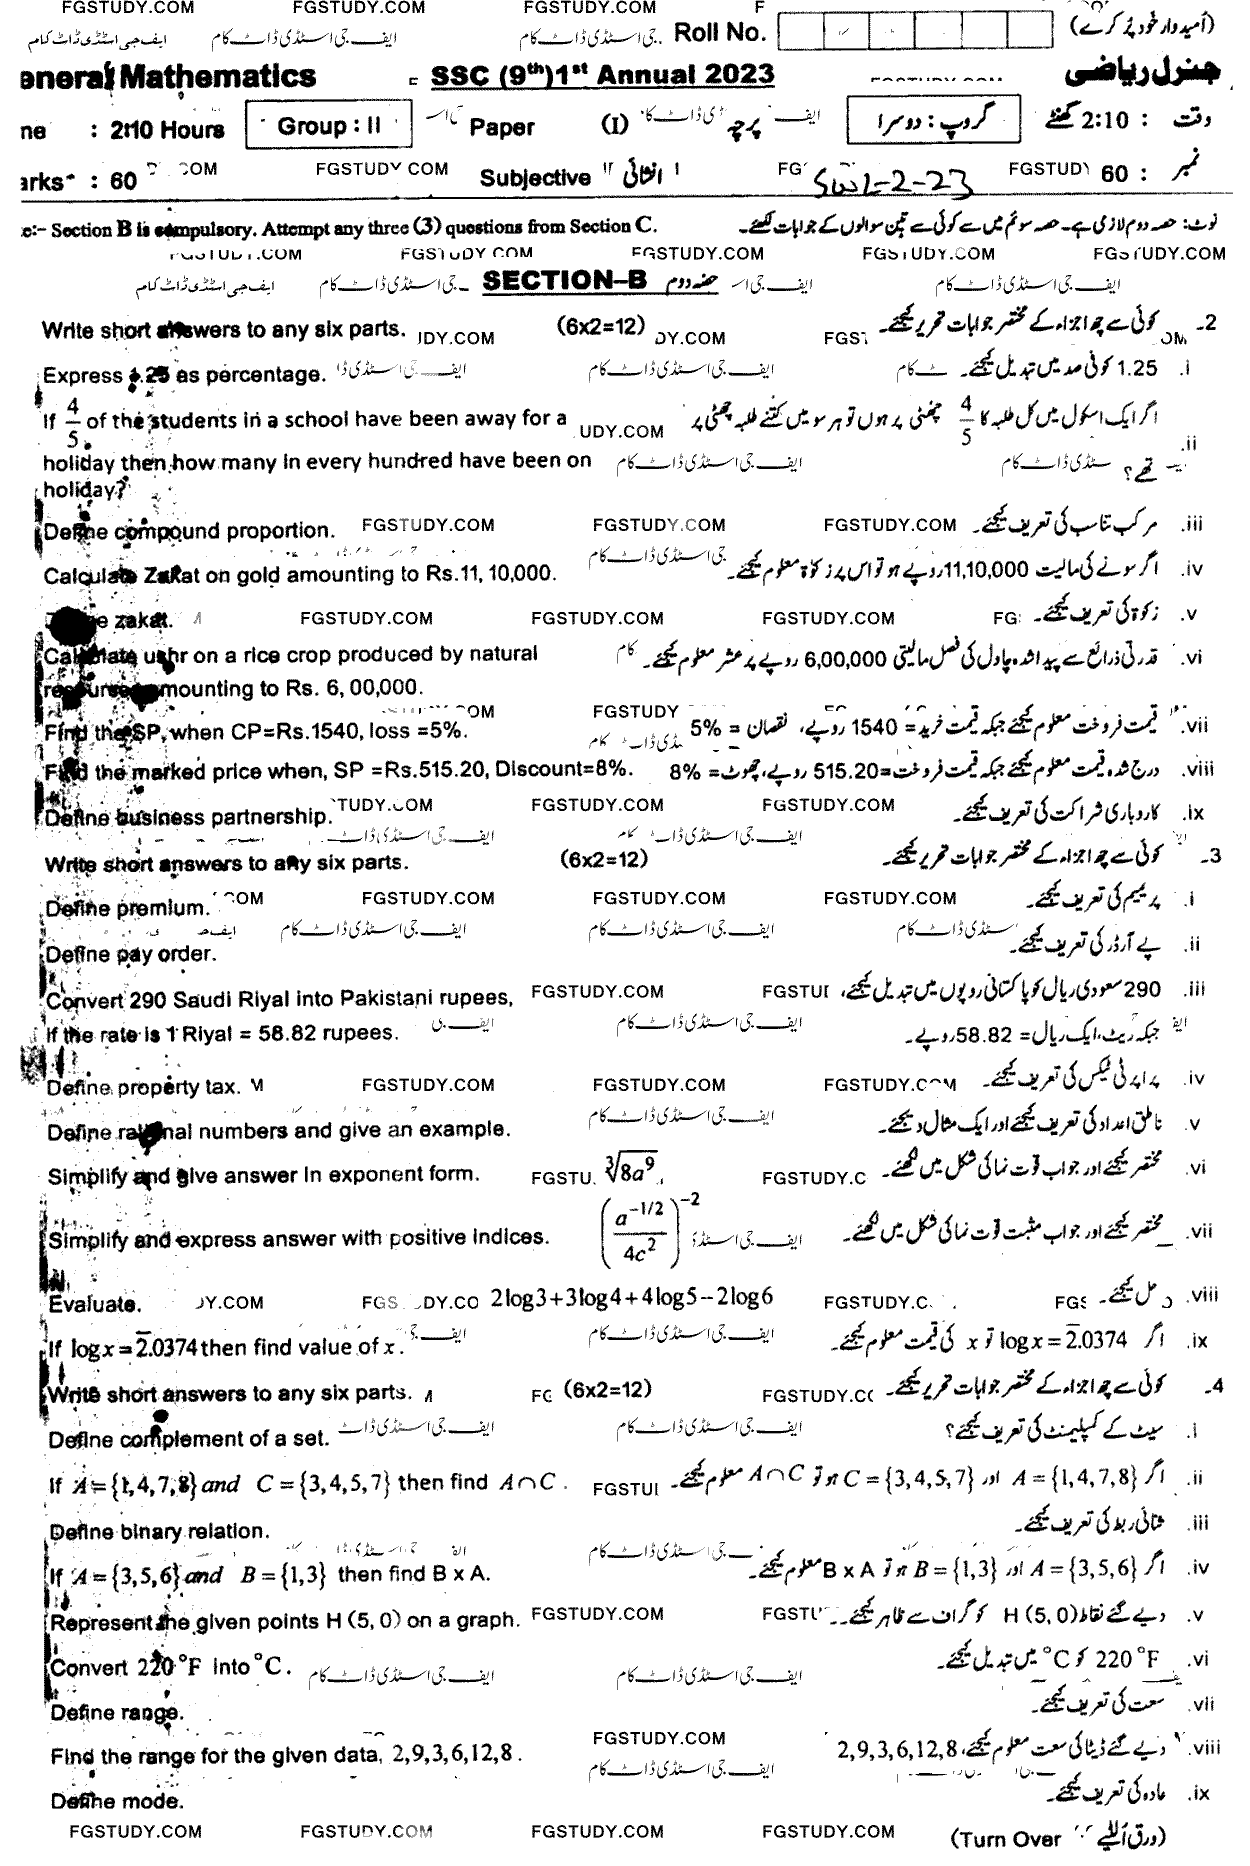 FGSTUDY.COM FGSTUDY.COM FGSTUDY.COM
ایف جی اسٹڈی ڈاٹ کام ایف جی اسٹڈی ڈاٹ کام جی اسٹڈی ڈاٹ کام Roll No. (اُمیدوار خود پُر کرے)
eneral Mathematics SSC (9th)1st Annual 2023 جنرل ریاضی
ne : 2:10 Hours Group : II Paper (I) پرچہ گروپ : دوسرا وقت : 2:10 گھنٹے
arks : 60 FGSTUDY COM Subjective انشائی SWL-2-23 نمبر : 60
e:- Section B is compulsory. Attempt any three (3) questions from Section C. نوٹ: حصہ دوم لازمی ہے۔ حصہ سوئم میں سے کوئی سے تین سوالوں کے جوابات لکھیئے۔
FGSTUDY.COM FGSTUDY.COM FGSTUDY.COM FGSTUDY.COM FGSTUDY.COM
ایف جی اسٹڈی ڈاٹ کام جی اسٹڈی ڈاٹ کام SECTION–B حصہ دوم ایف جی اسٹڈی ڈاٹ کام
Write short answers to any six parts. (6x2=12) کوئی سے چھ اجزاء کے مختصر جوابات تحریر کیجئے۔ 2-
Express 1.25 as percentage. 1.25 کوفی صد میں تبدیل کیجئے۔ i.
If 4/5 of the students in a school have been away for a اگر ایک اسکول میں کل طلبہ کا 4/5 چھٹی پر ہوں تو ہر سو میں کتنے طلبہ چھٹی پر ii.
holiday then how many in every hundred have been on تھے؟
holiday?
Define compound proportion. FGSTUDY.COM FGSTUDY.COM FGSTUDY.COM مرکب تناسب کی تعریف کیجئے۔ iii.
Calculate Zakat on gold amounting to Rs.11, 10,000. اگر سونے کی مالیت 11,10,000 روپے ہو تو اس پر زکوٰۃ معلوم کیجئے۔ iv.
zakat. FGSTUDY.COM FGSTUDY.COM FGSTUDY.COM زکوٰۃ کی تعریف کیجئے۔ v.
Calculate ushr on a rice crop produced by natural قدرتی ذرائع سے پیدا شدہ چاول کی فصل مالیتی 6,00,000 روپے پر عشر معلوم کیجئے۔ vi.
resources amounting to Rs. 6, 00,000.
Find the SP, when CP=Rs.1540, loss =5%. قیمت فروخت معلوم کیجئے جبکہ قیمت خرید= 1540 روپے، نقصان = 5% vii.
Find the marked price when, SP =Rs.515.20, Discount=8%. درج شدہ قیمت معلوم کیجئے جبکہ قیمت فروخت=515.20 روپے، چھوٹ= 8% viii.
Define business partnership. FGSTUDY.COM FGSTUDY.COM کاروباری شراکت کی تعریف کیجئے۔ ix.
Write short answers to any six parts. (6x2=12) کوئی سے چھ اجزاء کے مختصر جوابات تحریر کیجئے۔ 3-
Define premium. FGSTUDY.COM FGSTUDY.COM FGSTUDY.COM پریمیم کی تعریف کیجئے۔ i.
Define pay order. پے آرڈر کی تعریف کیجئے۔ ii.
Convert 290 Saudi Riyal into Pakistani rupees, FGSTUDY.COM 290 سعودی ریال کو پاکستانی روپوں میں تبدیل کیجئے، iii.
If the rate is 1 Riyal = 58.82 rupees. جبکہ ریٹ، ایک ریال= 58.82 روپے۔
Define property tax. FGSTUDY.COM FGSTUDY.COM پراپرٹی ٹیکس کی تعریف کیجئے۔ iv.
Define rational numbers and give an example. ناطق اعداد کی تعریف کیجئے اور ایک مثال دیجئے۔ v.
Simplify and give answer in exponent form. ∛8a⁹ مختصر کیجئے اور جواب قوت نمائی شکل میں لکھئے۔ vi.
Simplify and express answer with positive indices. (a^(-1/2)/4c²)^(-2) مختصر کیجئے اور جواب مثبت قوت نمائی شکل میں لکھئے۔ vii.
Evaluate. 2log3+3log4+4log5−2log6 حل کیجئے۔ viii.
If log x = 2̄.0374 then find value of x. اگر log x = 2̄.0374 تو x کی قیمت معلوم کیجئے۔ ix.
Write short answers to any six parts. (6x2=12) کوئی سے چھ اجزاء کے مختصر جوابات تحریر کیجئے۔ 4-
Define complement of a set. سیٹ کے کمپلیمنٹ کی تعریف کیجئے؟ i.
If A = {1,4,7,8} and C = {3,4,5,7} then find A∩C. اگر A = {1,4,7,8} اور C = {3,4,5,7} ہو تو A∩C معلوم کیجئے۔ ii.
Define binary relation. ثنائی ربط کی تعریف کیجئے۔ iii.
If A = {3,5,6} and B = {1,3} then find B x A. اگر A = {3,5,6} اور B = {1,3} ہو تو B x A معلوم کیجئے۔ iv.
Represent the given points H (5, 0) on a graph. FGSTUDY.COM دیے گئے نقاط H (5, 0) کو گراف سے ظاہر کیجئے۔ v.
Convert 220 °F into °C. 220 °F کو °C میں تبدیل کیجئے۔ vi.
Define range. سعت کی تعریف کیجئے۔ vii.
Find the range for the given data, 2,9,3,6,12,8. دیے گئے ڈیٹا کی سعت معلوم کیجئے، 2,9,3,6,12,8 viii.
Define mode. عادہ کی تعریف کیجئے۔ ix.
FGSTUDY.COM FGSTUDY.COM FGSTUDY.COM FGSTUDY.COM (Turn Over ورق اُلٹیے)